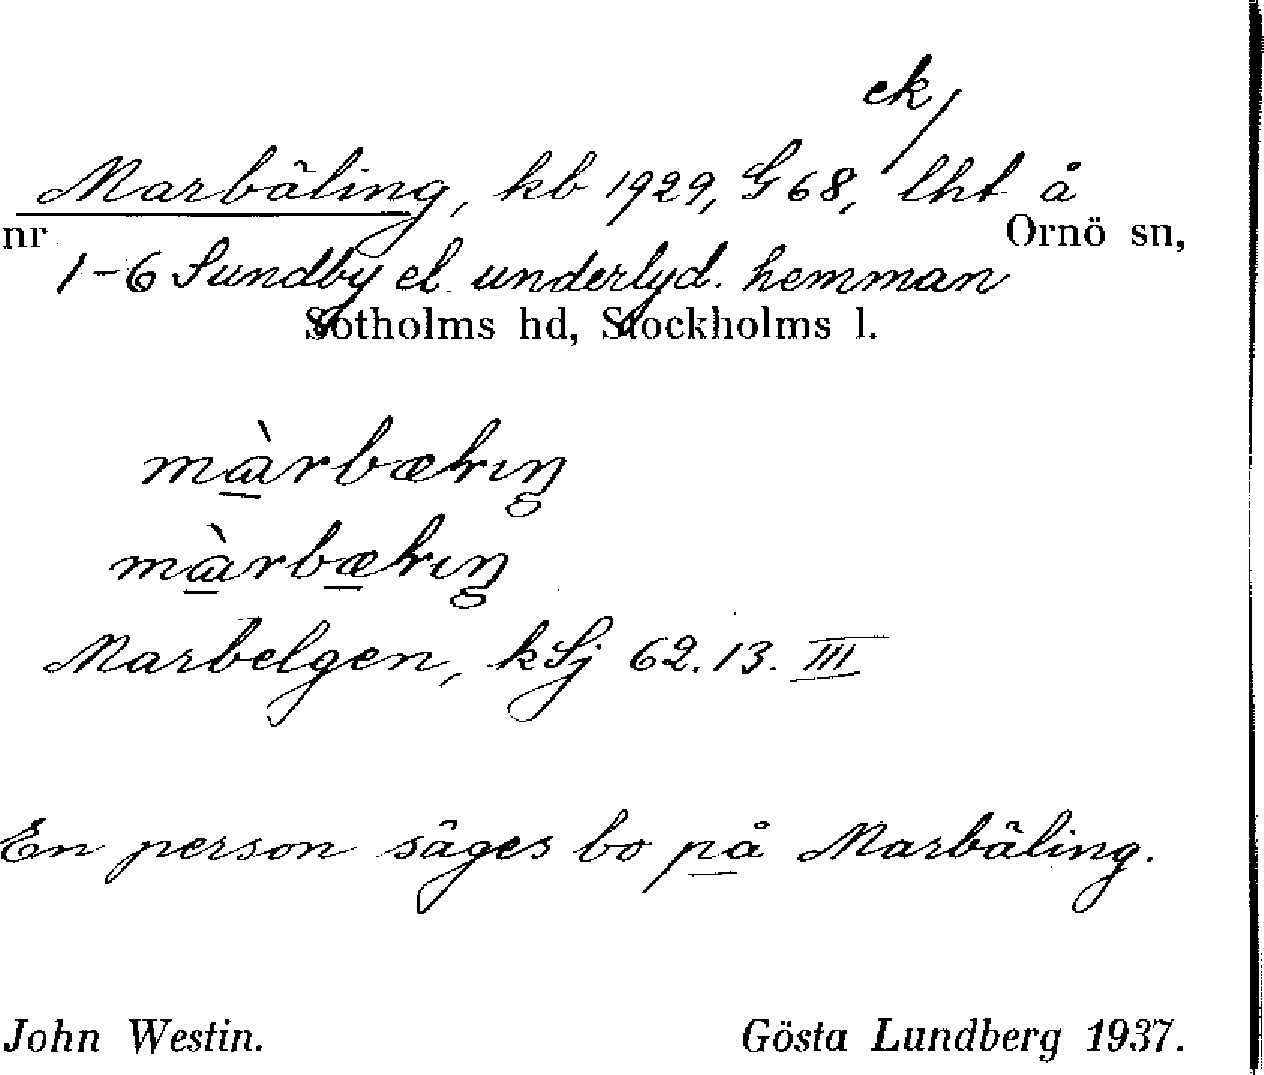 ek/
Marbäling, kb 1929, G 68, lht å
nr Ornö sn,
1-6 Sundby el. underlyd. hemman
Sotholms hd, Stockholms l.
Marbelgen, kSj 62.13. III
En person säges bo på Marbäling.
John Westin. Gösta Lundberg 1937.